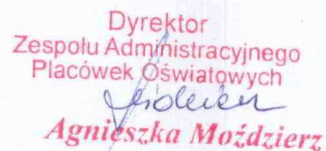 Dyrektor
Zespołu Administracyjnego
Placówek Oświatowych
Agnieszka Moździerz